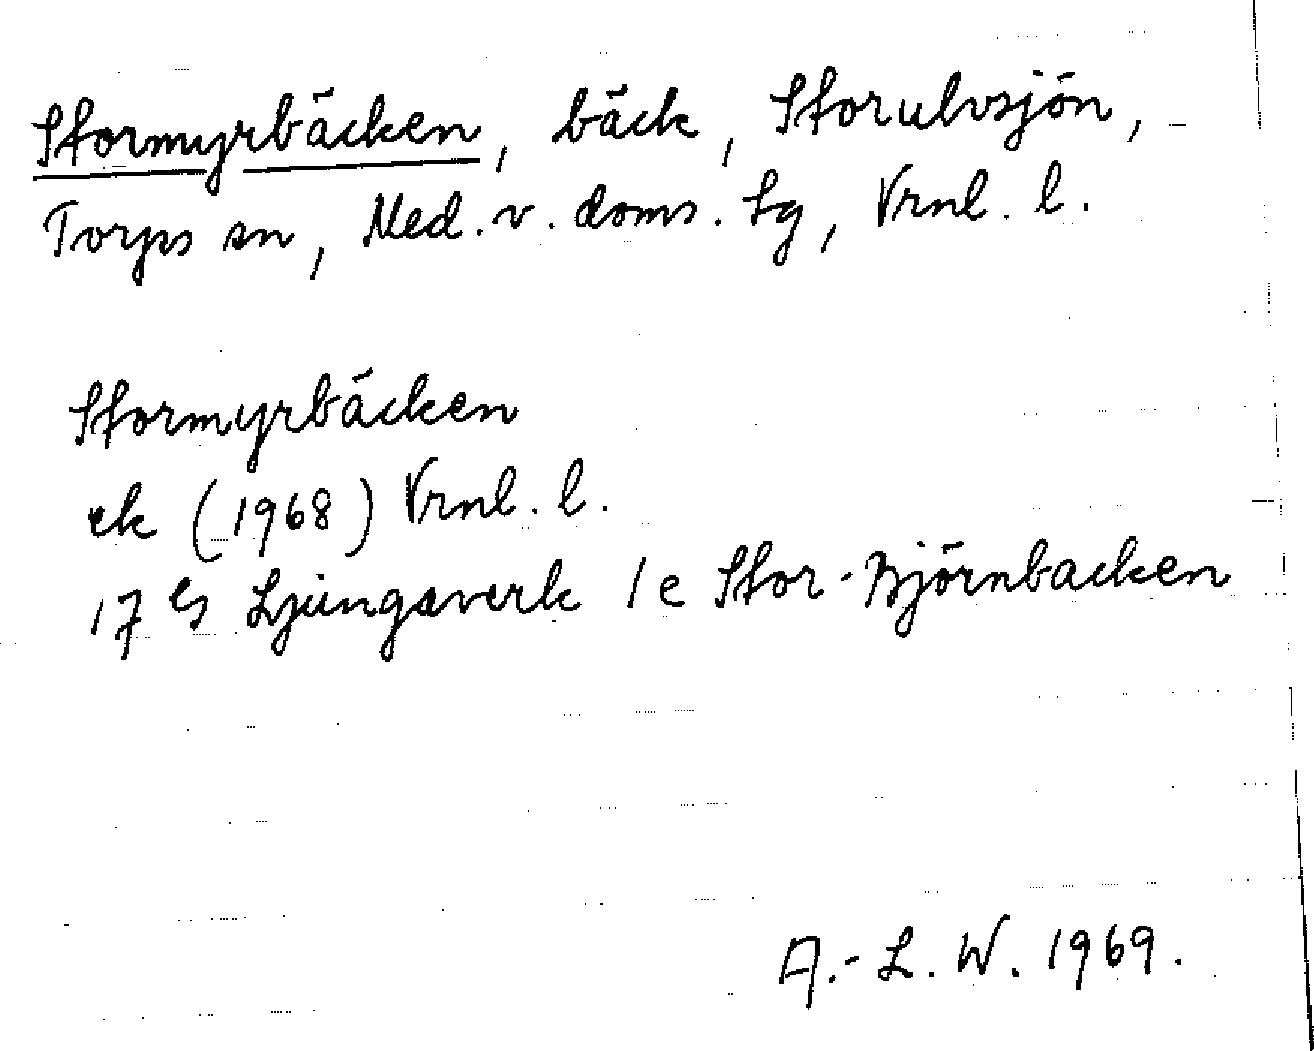 Stormyrbäcken, bäck, Storulvsjön,
Torps sn, Med. v. doms. tg, Vrnl. l.
Stormyrbäcken
ek (1968) Vrnl. l.
17 G Ljungaverk 1e Stor-Björnbacken
A.-L. W. 1969.